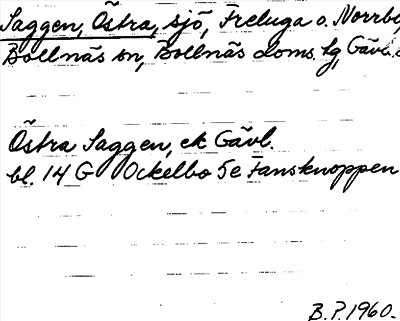 Saggen, Östra, sjö, Freluga o. Norrbo
Bollnäs sn, Bollnäs doms. hg, Gävl.
Östra Saggen, ek Gävl.
bl. 14 G Ockelbo 5e Fansknoppen
B.P. 1960.